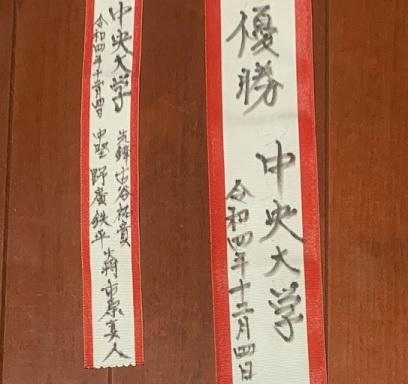 優勝
中央大学
令和四年十二月四日
中央大学
令和四年十二月四日
先鋒 古谷祐貴
中堅 野廣鉄平
大将 市原真人